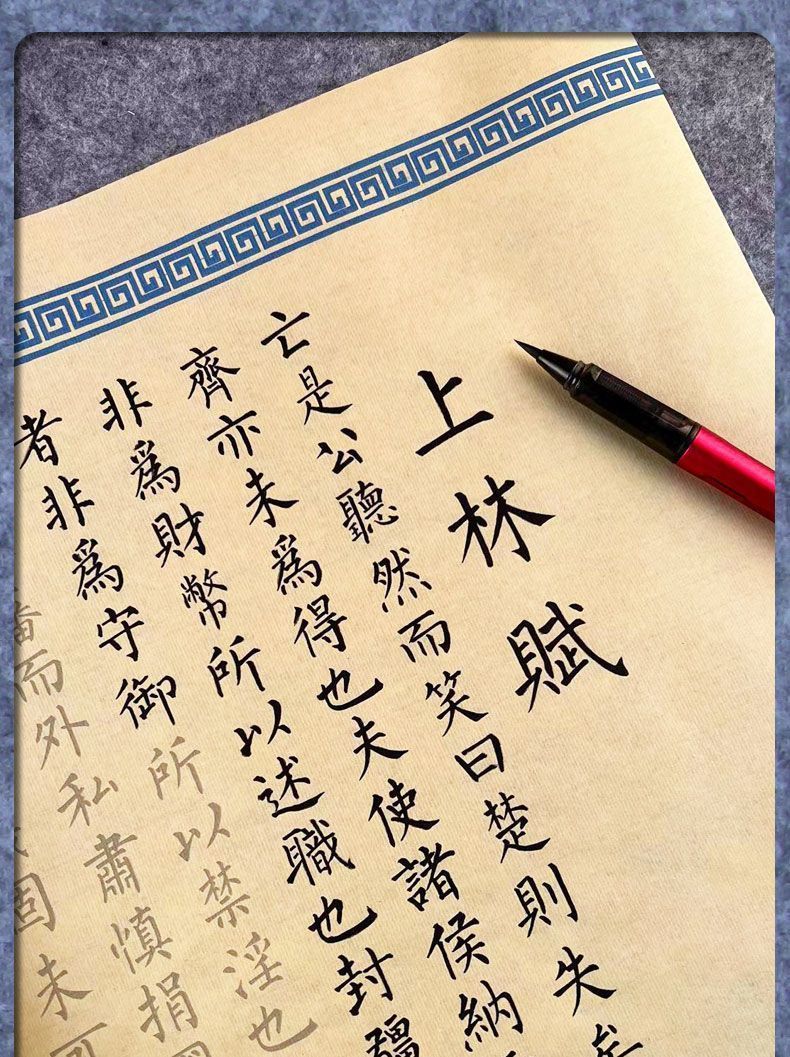 上林賦
亡是公聽然而笑曰楚則失矣
齊亦未爲得也夫使諸侯納
非爲財幣所以述職也封疆
者非爲守御所以禁淫也
藩而外私肅慎捐
固未可